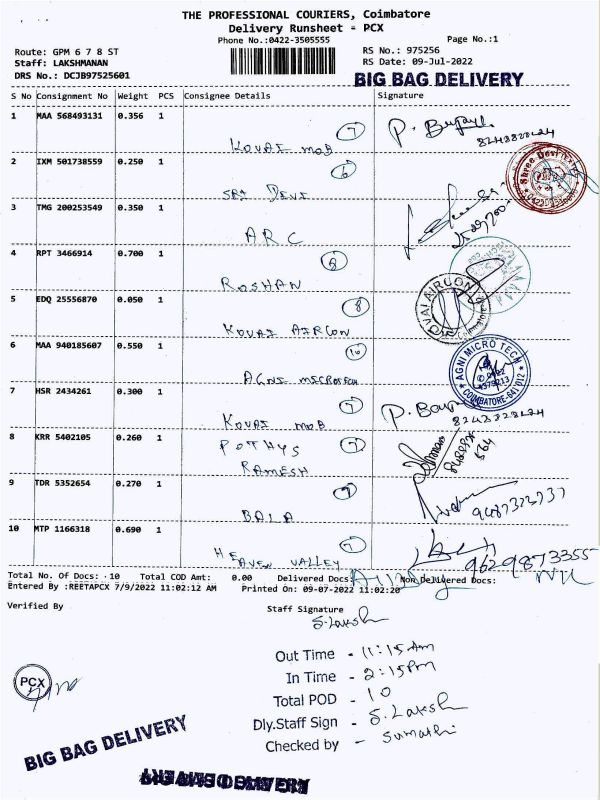 THE PROFESSIONAL COURIERS, Coimbatore
Delivery Runsheet - PCX
Phone No.:0422-3505555
Page No.:1
Route: GPM 6 7 8 ST
RS No.: 975256
Staff: LAKSHMANAN
RS Date: 09-Jul-2022
DRS No.: DCJB97525601
BIG BAG DELIVERY
S No Consignment No Weight PCS Consignee Details Signature
1 MAA 568493131 0.356 1
7 P.
KOVAI MOB 8243823424
2 IXM 501738559 0.250 1
6
SRI DEVI
3 TMG 200253549 0.350 1
ARC
4 RPT 3466914 0.700 1
ROSHAN
5 EDQ 25556870 0.050 1
8
KOVAI AIRCON
KOVAI AIRCON
6 MAA 940185607 0.550 1
10
AGNI MICROTECH
AGNI MICRO TECH
COIMBATORE-641 012
7 HSR 2434261 0.300 1
7 P.
KOVAI MOB
8 KRR 5402105 0.260 1
POTHYS 7
RAMESH
9 TDR 5352654 0.270 1
7
BALA
9487323737
10 MTP 1166318 0.690 1
7
HEAVEN VALLEY
9629873355
Total No. Of Docs: - 10 Total COD Amt: 0.00 Delivered Docs: Non Delivered Docs: Nil
Entered By :REETAPCX 7/9/2022 11:02:12 AM Printed On: 09-07-2022 11:02:20
Verified By
Staff Signature
S. Laksh
Out Time - 11:15 Am
In Time - 2:15 Pm
PCX
Total POD - 10
Dly.Staff Sign - S. Laksh
Checked by - Sumathi
BIG BAG DELIVERY